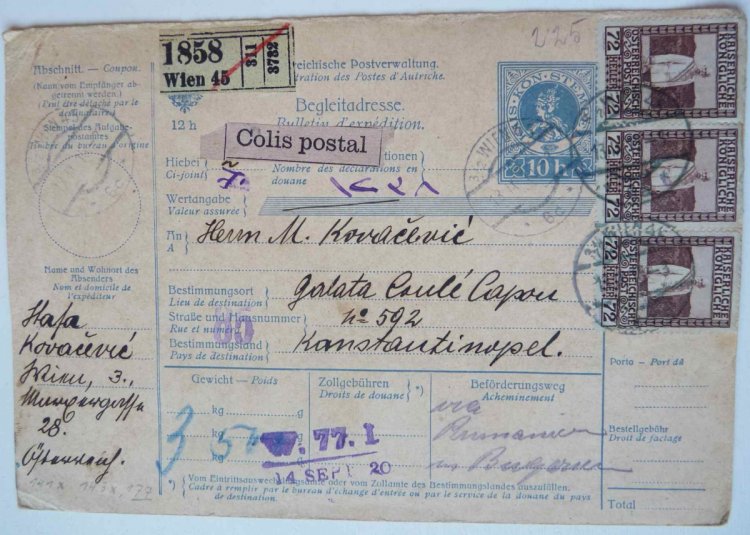 1858
Wien 45
311
3732
225
Abschnitt. — Coupon.
(Kann vom Empfänger abgetrennt werden.)
(Peut être détaché par le destinataire.)
Stempel des Aufgabepostamtes
Timbre du bureau d'origine
reichische Postverwaltung.
tration des Postes d'Autriche.
Begleitadresse.
Bulletin d'expédition.
12 h
Colis postal
10 H
72 HELLER 72
KAISERLICHE KÖNIGLICHE
ÖSTERREICHISCHE POST
72 HELLER 72
KAISERLICHE KÖNIGLICHE
ÖSTERREICHISCHE POST
72 HELLER 72
KAISERLICHE KÖNIGLICHE
ÖSTERREICHISCHE POST
Hiebei
Ci-joint
Nombre des déclarations en douane
Wertangabe
Valeur assurée
An
A
Herrn M. Kovačević
Bestimmungsort
Lieu de destination
Galata Coulé Capou
Straße und Hausnummer
Rue et numéro
№ 592
Bestimmungsland
Pays de destination
Konstantinopel.
Name und Wohnort des Absenders
Nom et domicile de l'expéditeur
Kovačević
Wien, 3.,
28.
Österreich.
Gewicht — Poids
Zollgebühren
Droits de douane
*)
Beförderungsweg
Acheminement
via
Rumänien
kg
g
kg
g
kg
g
W. 77. I
14 SEPT. 20
Porto — Port dû
Bestellgebühr
Droit de factage
Total
*) Vom Eintrittsauswechslungsamte oder vom Zollamte des Bestimmungslandes auszufüllen.
Cadre à remplir par le bureau d'échange d'entrée ou par le service de la douane du pays de destination.